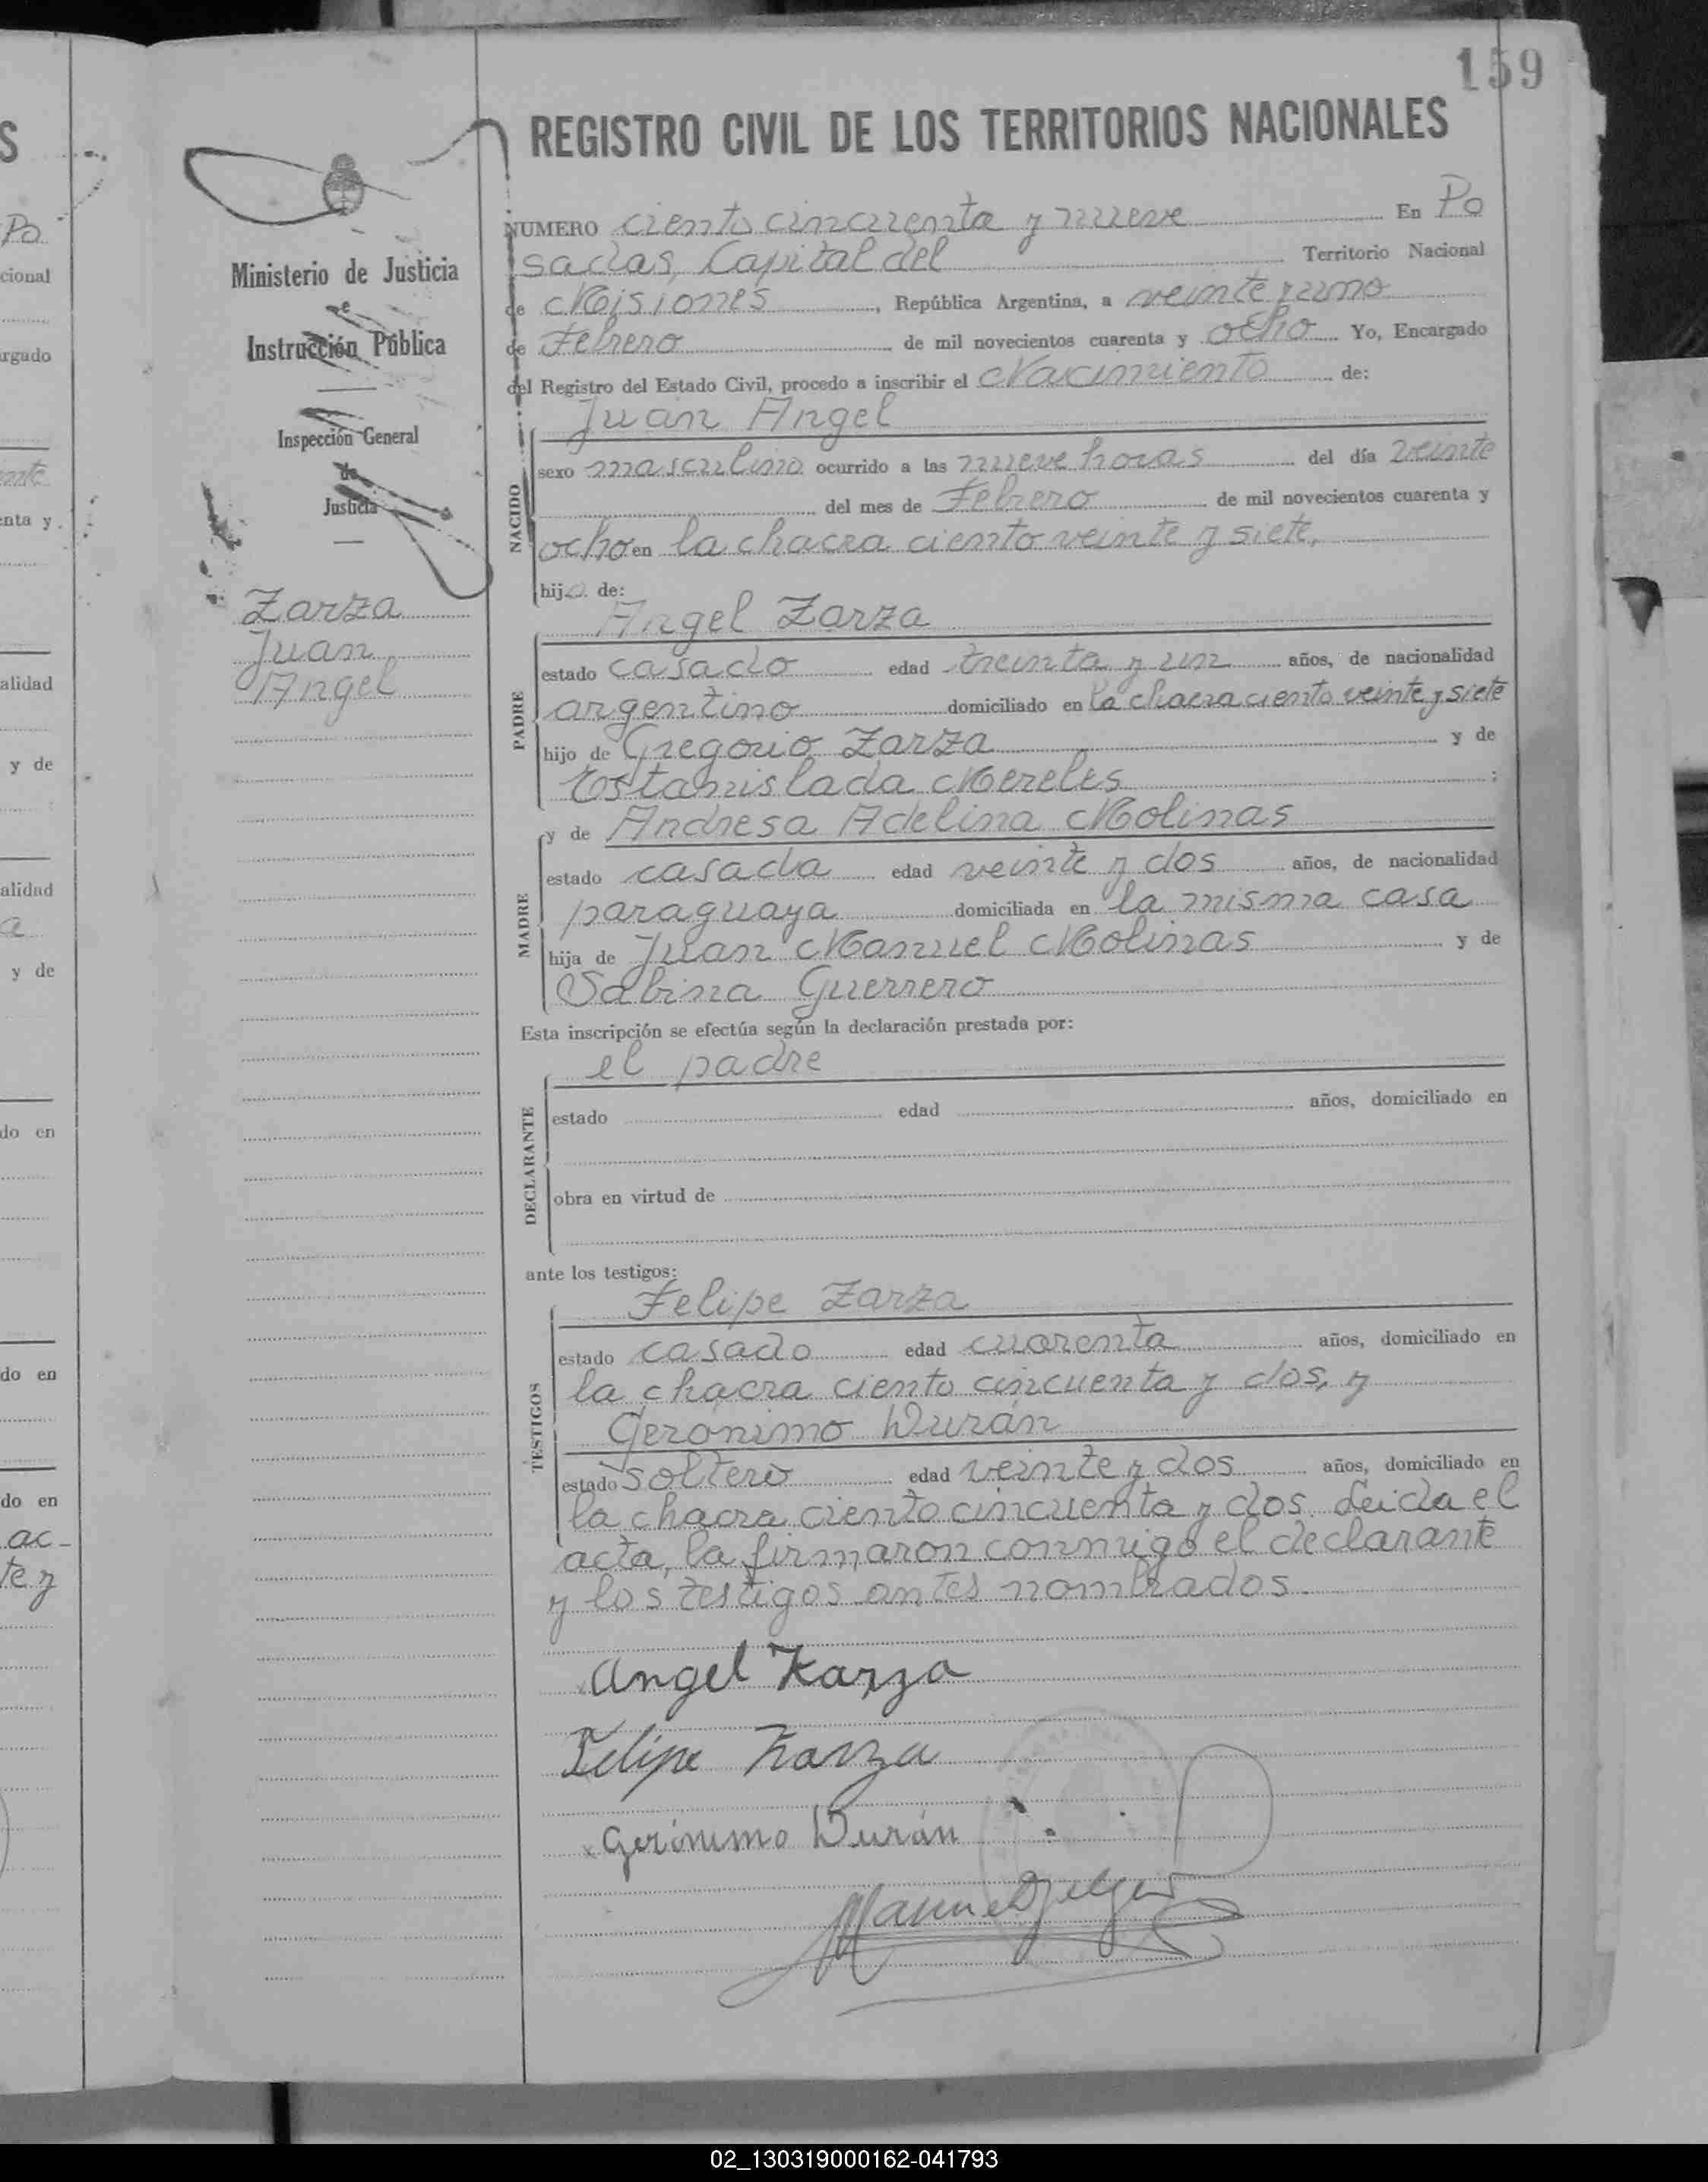 159
REGISTRO CIVIL DE LOS TERRITORIOS NACIONALES
Ministerio de Justicia
e
Instrucción Pública
Inspección General
de
Justicia
Zarza
Juan
Angel
NUMERO ciento cincuenta y nueve En Po
sadas, Capital del Territorio Nacional
de Misiones, República Argentina, a veinte y uno
de Febrero de mil novecientos cuarenta y ocho Yo, Encargado
del Registro del Estado Civil, procedo a inscribir el Nacimiento de:
NACIDO
Juan Angel
sexo masculino ocurrido a las nueve horas del día veinte
del mes de Febrero de mil novecientos cuarenta y
ocho en la chacra ciento veinte y siete,
hijo de:
PADRE
Angel Zarza
estado casado edad treinta y un años, de nacionalidad
argentino domiciliado en la chacra ciento veinte y siete
hijo de Gregorio Zarza y de
Estanislada Mereles;
MADRE
y de Andresa Adelina Molinas
estado casada edad veinte y dos años, de nacionalidad
paraguaya domiciliada en la misma casa
hija de Juan Manuel Molinas y de
Sabina Guerrero
Esta inscripción se efectúa según la declaración prestada por:
DECLARANTE
el padre
estado edad años, domiciliado en
obra en virtud de
ante los testigos:
TESTIGOS
Felipe Zarza
estado casado edad cuarenta años, domiciliado en
la chacra ciento cincuenta y dos, y
Gerónimo Durán
estado soltero edad veinte y dos años, domiciliado en
la chacra ciento cincuenta y dos. Leida el
acta, la firmaron conmigo el declarante
y los testigos antes nombrados.
Angel Zarza
Felipe Zarza
Gerónimo Durán
Manuel
S
Po
cional
rgado
ente
enta y
alidad
y de
alidad
a
y de
do en
do en
do en
ac-
te y
02_130319000162-041793